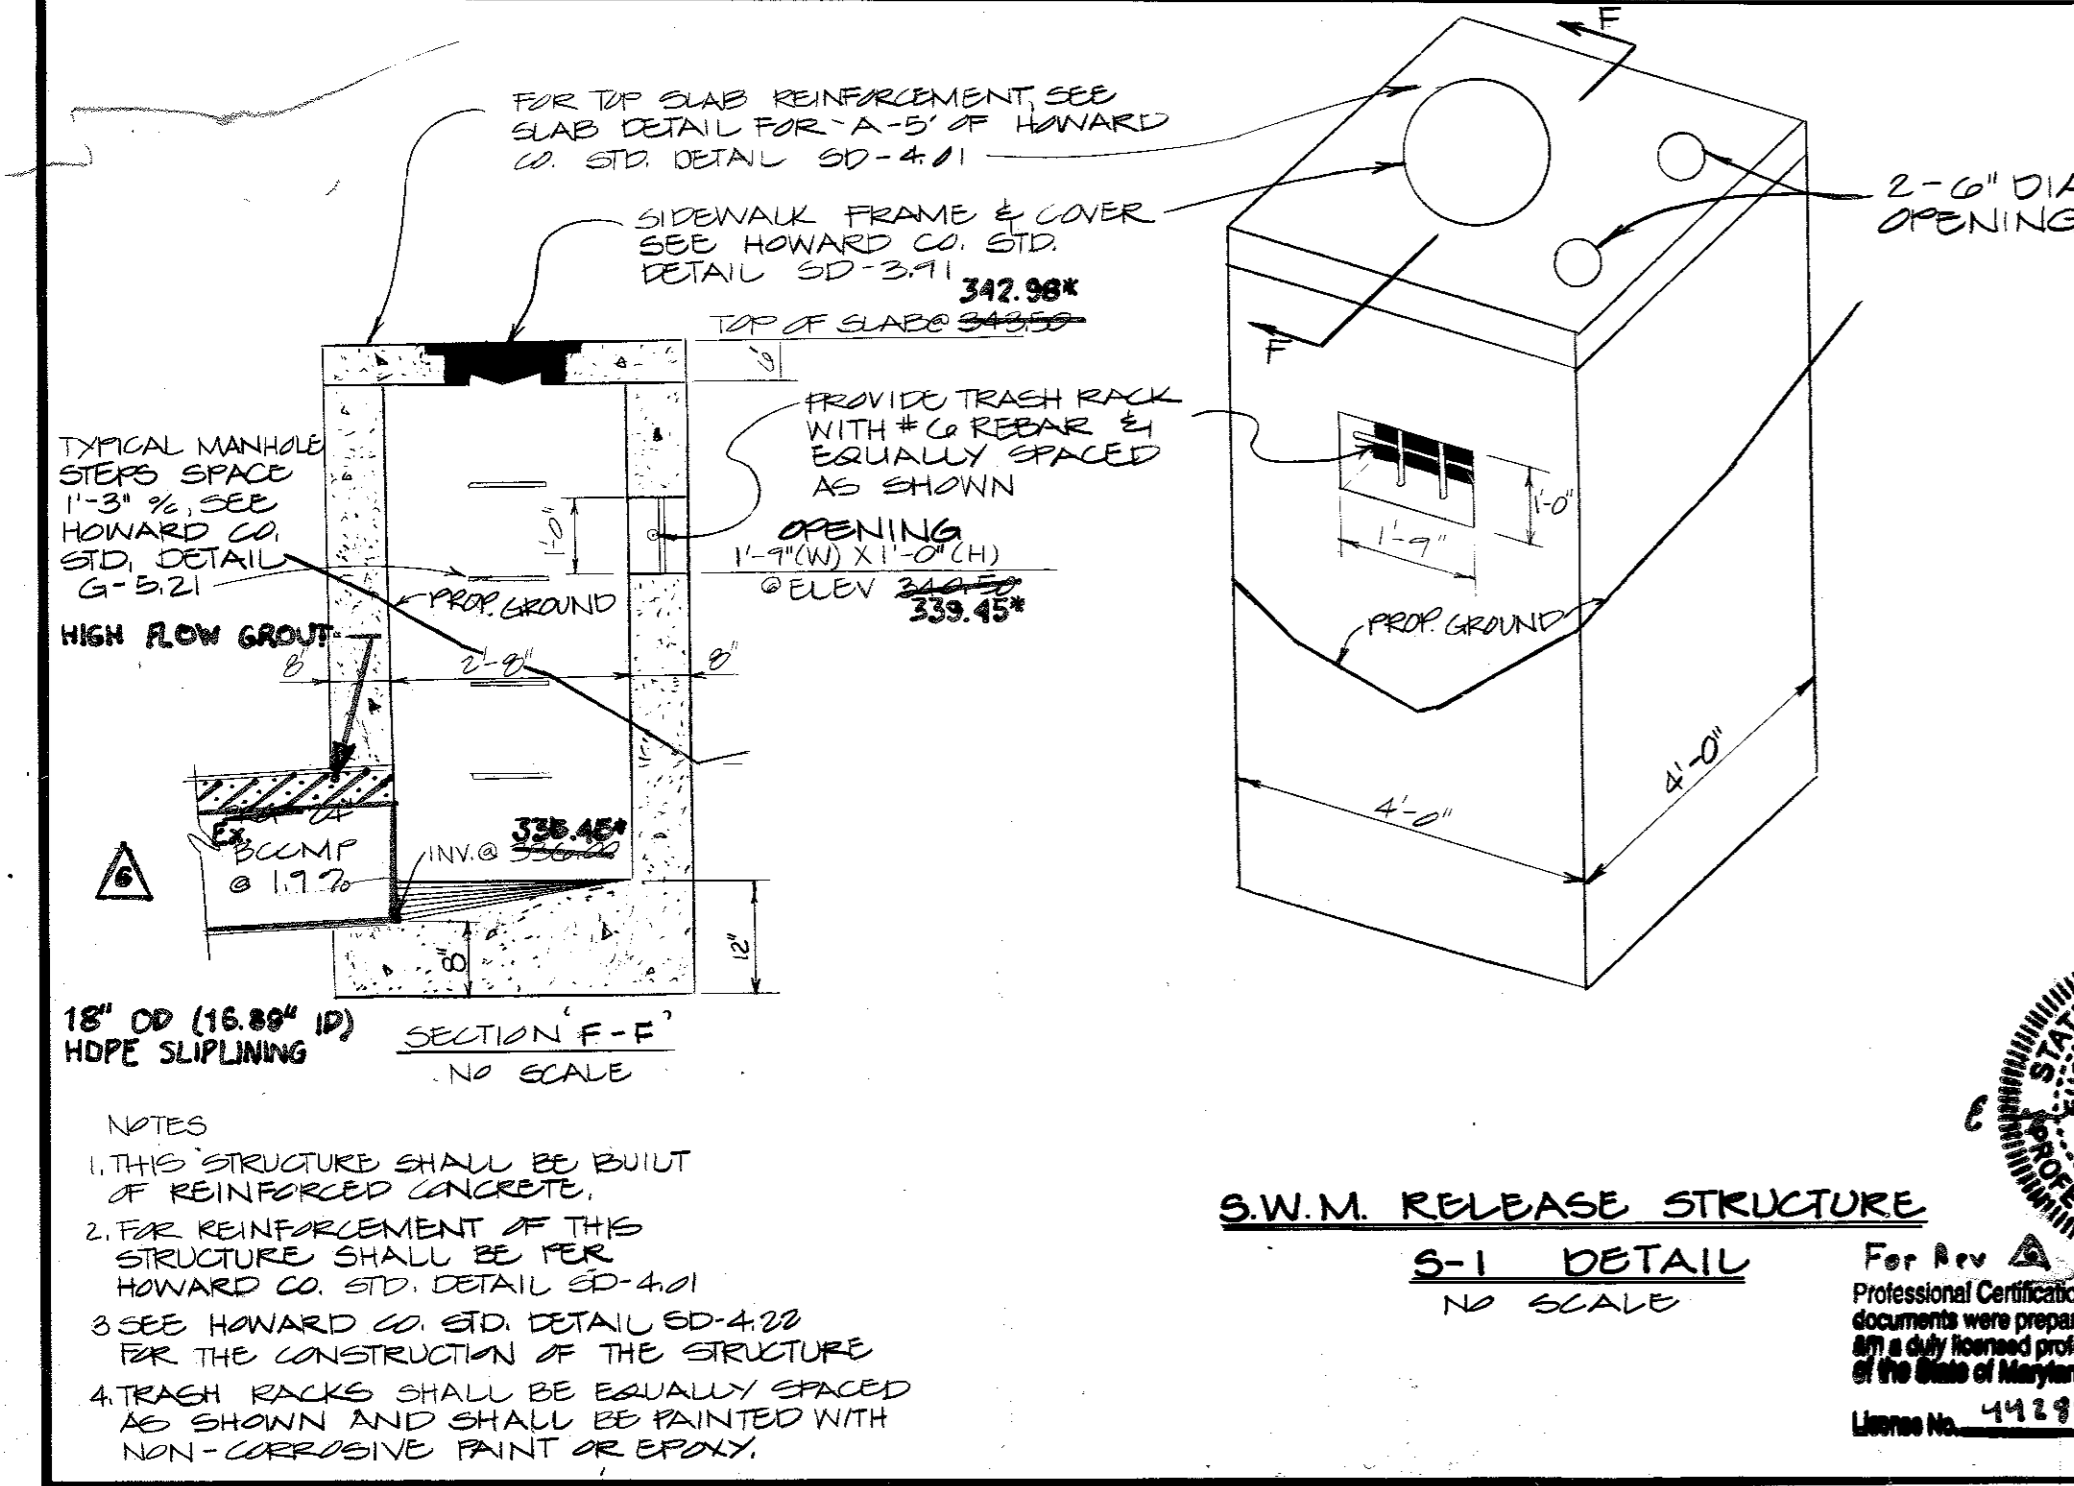 F
FOR TOP SLAB REINFORCEMENT, SEE
SLAB DETAIL FOR 'A-5' OF HOWARD
CO. STD. DETAIL SD-4.01
SIDEWALK FRAME & COVER
SEE HOWARD CO. STD.
DETAIL SD-3.91
342.98*
TOP OF SLAB @ 343.50
6"
2-6" DIA
OPENING
F
PROVIDE TRASH RACK
WITH #6 REBAR &
EQUALLY SPACED
AS SHOWN
TYPICAL MANHOLE
STEPS SPACE
1'-3" %, SEE
HOWARD CO.
STD. DETAIL
G-5.21
1'-0"
OPENING
1'-9"(W) X 1'-0"(H)
@ ELEV 340.50
339.45*
1'-0"
1'-9"
PROP. GROUND
PROP. GROUND
HIGH FLOW GROUT
8"
2'-8"
8"
4'-0"
4'-0"
24"
Ex.
BCCMP
@ 1.9%
6
INV. @ 336.00
8"
12"
18" OD (16.89" ID)
HDPE SLIPLINING
SECTION 'F-F'
NO SCALE
NOTES
1. THIS STRUCTURE SHALL BE BUILT
OF REINFORCED CONCRETE.
2. FOR REINFORCEMENT OF THIS
STRUCTURE SHALL BE PER
HOWARD CO. STD. DETAIL SD-4.01
3 SEE HOWARD CO. STD. DETAIL SD-4.22
FOR THE CONSTRUCTION OF THE STRUCTURE
4. TRASH RACKS SHALL BE EQUALLY SPACED
AS SHOWN AND SHALL BE PAINTED WITH
NON-CORROSIVE PAINT OR EPOXY.
S.W.M. RELEASE STRUCTURE
S-1 DETAIL
NO SCALE
STAT
PROFE
For Rev 6
Professional Certificatio
documents were prepar
am a duly licensed prof
of the State of Marylan
License No. 4428